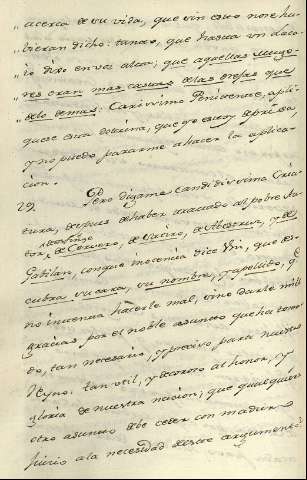 "acerca de su vida, que sin esso no se hu-
"bieran dicho: tanto, que hasta un laca-
"io dixo en voz alta, que aquellas Muge-
"res eran mas castas de las orejas que
"de lo demas: Carissimo Penitente, apli-
quese esta dotrina, que yo estoy de prissa
y no puedo pararme a hacer la aplica-
cion.
29 Pero digame Candidissima Cria-
tura, despues de haber tratado al pobre Au-
tor, de Cuervo, de de Abestruz, y de
Gabilan, conque inocencia dice Vm, que des-
cubra su cara, su nombre, y apellido, q
no intenta hacerle mal, sino darle mil
gracias por el noble asunto que ha toma-
do, tan necesario, y preciso para nuestro
Reyno: tan util, y decoroso al honor, y
gloria de nuestra nacion; que qualquier
otro asunto debe ceder con maduro
juicio a la necesidad de este argumento?